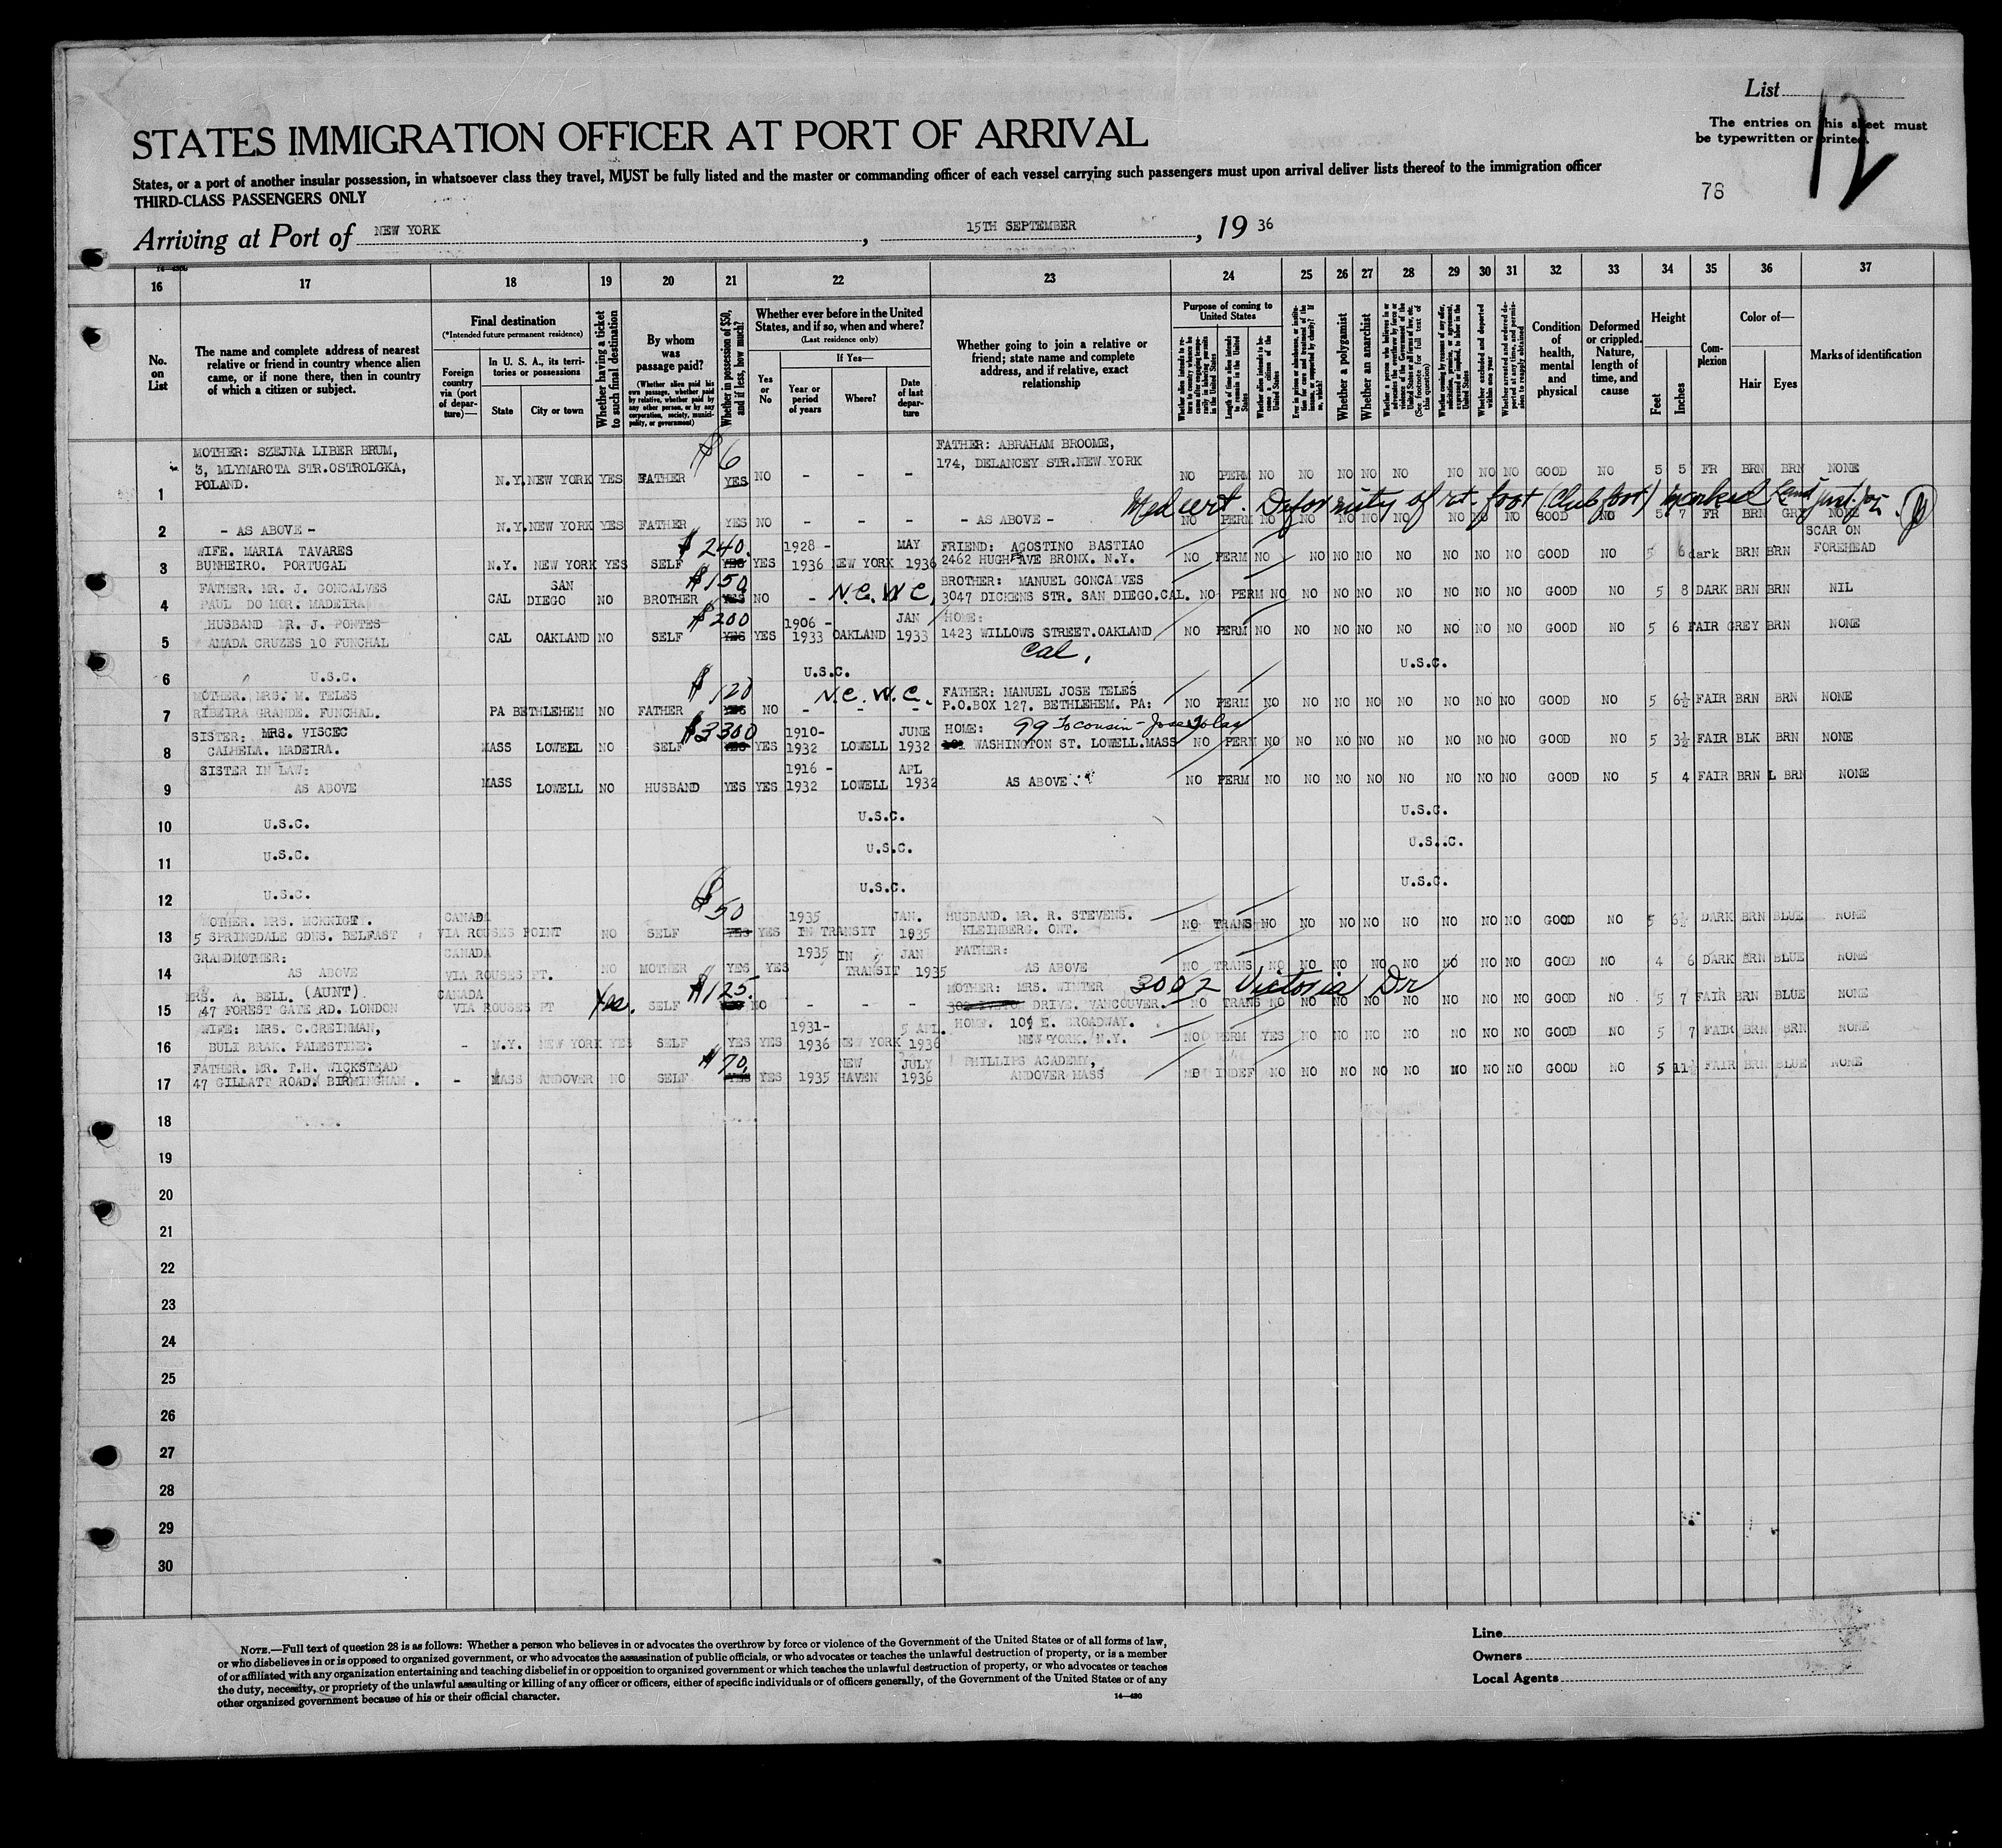 List
12
STATES IMMIGRATION OFFICER AT PORT OF ARRIVAL
The entries on this sheet must
be typewritten or printed.
States, or a port of another insular possession, in whatsoever class they travel, MUST be fully listed and the master or commanding officer of each vessel carrying such passengers must upon arrival deliver lists thereof to the immigration officer
THIRD-CLASS PASSENGERS ONLY
78
Arriving at Port of NEW YORK, 15TH SEPTEMBER, 19 36
16 17 18 19 20 21 22 23 24 25 26 27 28 29 30 31 32 33 34 35 36 37
No. on List
The name and complete address of nearest relative or friend in country whence alien came, or if none there, then in country of which a citizen or subject.
Final destination
(*Intended future permanent residence)
Foreign country via (port of departure)—
In U. S. A., its territories or possessions
State
City or town
Whether having a ticket to such final destination
By whom was passage paid?
(Whether alien paid his own passage, whether paid by relative, whether paid by any other person, or by any corporation, society, municipality, or government)
Whether in possession of $50, and if less, how much?
Whether ever before in the United States, and if so, when and where?
(Last residence only)
Yes or No
If Yes—
Year or period of years
Where?
Date of last departure
Whether going to join a relative or friend; state name and complete address, and if relative, exact relationship
Purpose of coming to United States
Length of time alien intends to remain in the United States
Whether alien intends to become a citizen of the United States
Whether a polygamist
Whether an anarchist
Whether excluded and deported within one year
Condition of health, mental and physical
Deformed or crippled. Nature, length of time, and cause
Height
Feet
Inches
Complexion
Color of—
Hair
Eyes
Marks of identification
MOTHER: SZEJNA LIBER BRUM,
3, MLYNAROTA STR.OSTROLGKA,
POLAND.
1 N.Y. NEW YORK YES FATHER $6 YES NO - - -
FATHER: ABRAHAM BROOME,
174, DELANCEY STR.NEW YORK
NO PERM NO NO NO NO NO NO NO NO GOOD NO 5 5 FR BRN BRN NONE
Med cert. Deformity of rt. foot (Club foot) marked
2 - AS ABOVE - N.Y. NEW YORK YES FATHER YES NO - - - - AS ABOVE - NO PERM NO NO NO NO NO NO NO NO GOOD NO 5 7 FR BRN GRY NONE
WIFE. MARIA TAVARES $240. 1928 - MAY FRIEND: AGOSTINO BASTIAO SCAR ON
3 BUNHEIRO. PORTUGAL N.Y. NEW YORK YES SELF YES YES 1936 NEW YORK 1936 2462 HUGHES AVE BRONX. N.Y. NO PERM NO NO NO NO NO NO NO NO GOOD NO 5 6 dark BRN BRN FOREHEAD
FATHER. MR. J. GONCALVES SAN $150 BROTHER: MANUEL GONCALVES
4 PAUL DO MOR. MADEIRA CAL DIEGO NO BROTHER YES NO - N.C.W.C. 3047 DICKENS STR. SAN DIEGO.CAL. NO PERM NO NO NO NO NO NO NO NO GOOD NO 5 8 DARK BRN BRN NIL
HUSBAND MR. J. PONTES $200 1906 - JAN HOME:
5 AMADA CRUZES 10 FUNCHAL CAL OAKLAND NO SELF YES YES 1933 OAKLAND 1933 1423 WILLOWS STREET.OAKLAND NO PERM NO NO NO NO NO NO NO NO GOOD NO 5 6 FAIR GREY BRN NONE
Cal.
6 U.S.C. U.S.C. U.S.C.
MOTHER. MRS. M. TELES $120 N.C.W.C. FATHER: MANUEL JOSE TELES
7 RIBEIRA GRANDE. FUNCHAL. PA BETHLEHEM NO FATHER YES NO - - - P.O.BOX 127. BETHLEHEM. PA: NO PERM NO NO NO NO NO NO NO NO GOOD NO 5 6½ FAIR BRN BRN NONE
SISTER: MRS. VISCEC $3300 1910- JUNE HOME: 99 To cousin - Jose
8 CALHELA. MADEIRA. MASS LOWELL NO SELF YES YES 1932 LOWELL 1932 WASHINGTON ST. LOWELL.MASS NO PERM NO NO NO NO NO NO NO NO GOOD NO 5 3½ FAIR BLK BRN NONE
SISTER IN LAW: 1916 - APL
9 AS ABOVE MASS LOWELL NO HUSBAND YES YES 1932 LOWELL 1932 AS ABOVE NO PERM NO NO NO NO NO NO NO NO GOOD NO 5 4 FAIR BRN L BRN NONE
10 U.S.C. U.S.C. U.S.C.
11 U.S.C. U.S.C. U.S.C.
12 U.S.C. U.S.C. U.S.C.
MOTHER. MRS. MCKNIGT. CANADA $50 1935 JAN. HUSBAND. MR. R. STEVENS.
13 5 SPRINGDALE GDNS. BELFAST VIA ROUSES POINT NO SELF YES YES IN TRANSIT 1935 KLEINBERG. ONT. NO TRANS NO NO NO NO NO NO NO NO GOOD NO 5 6½ DARK BRN BLUE NONE
GRANDMOTHER: CANADA 1935 IN JAN FATHER:
14 AS ABOVE VIA ROUSES PT. NO MOTHER YES YES TRANSIT 1935 AS ABOVE NO TRANS NO NO NO NO NO NO NO NO GOOD NO 4 6 DARK BRN BLUE NONE
MRS. A. BELL. (AUNT). CANADA $125. MOTHER: MRS. WINTER 3002 Victoria Dr
15 47 FOREST GATE RD. LONDON VIA ROUSES PT Yes. SELF YES NO - - - DRIVE. VANCOUVER. NO TRANS NO NO NO NO NO NO NO NO GOOD NO 5 7 FAIR BRN BLUE NONE
WIFE: MRS. C.GREINMAN, 1931- 5 APL. HOME. 109 E. BROADWAY.
16 BULI BRAK. PALESTINE: - N.Y. NEW YORK YES SELF YES YES 1936 NEW YORK 1936 NEW YORK. N.Y. NO PERM YES NO NO NO NO NO NO NO GOOD NO 5 7 FAIR BRN BRN NONE
FATHER. MR. T.H. WICKSTEAD $70. NEW JULY PHILLIPS ACADEMY,
17 47 GILLATT ROAD. BIRMINGHAM. - MASS ANDOVER NO SELF YES YES 1935 HAVEN 1936 ANDOVER MASS INDEF NO NO NO NO NO NO NO NO GOOD NO 5 11½ FAIR BRN BLUE NONE
18
19
20
21
22
23
24
25
26
27
28
29
30
NOTE.—Full text of question 28 is as follows: Whether a person who believes in or advocates the overthrow by force or violence of the Government of the United States or of all forms of law,
or who disbelieves in or is opposed to organized government, or who advocates the assassination of public officials, or who advocates or teaches the unlawful destruction of property, or is a member
of or affiliated with any organization entertaining and teaching disbelief in or opposition to organized government or which teaches the unlawful destruction of property, or who advocates or teaches
the duty, necessity, or propriety of the unlawful assaulting or killing of any officer or officers, either of specific individuals or of officers generally, of the Government of the United States or of any
other organized government because of his or their official character.
14—430
Line
Owners
Local Agents